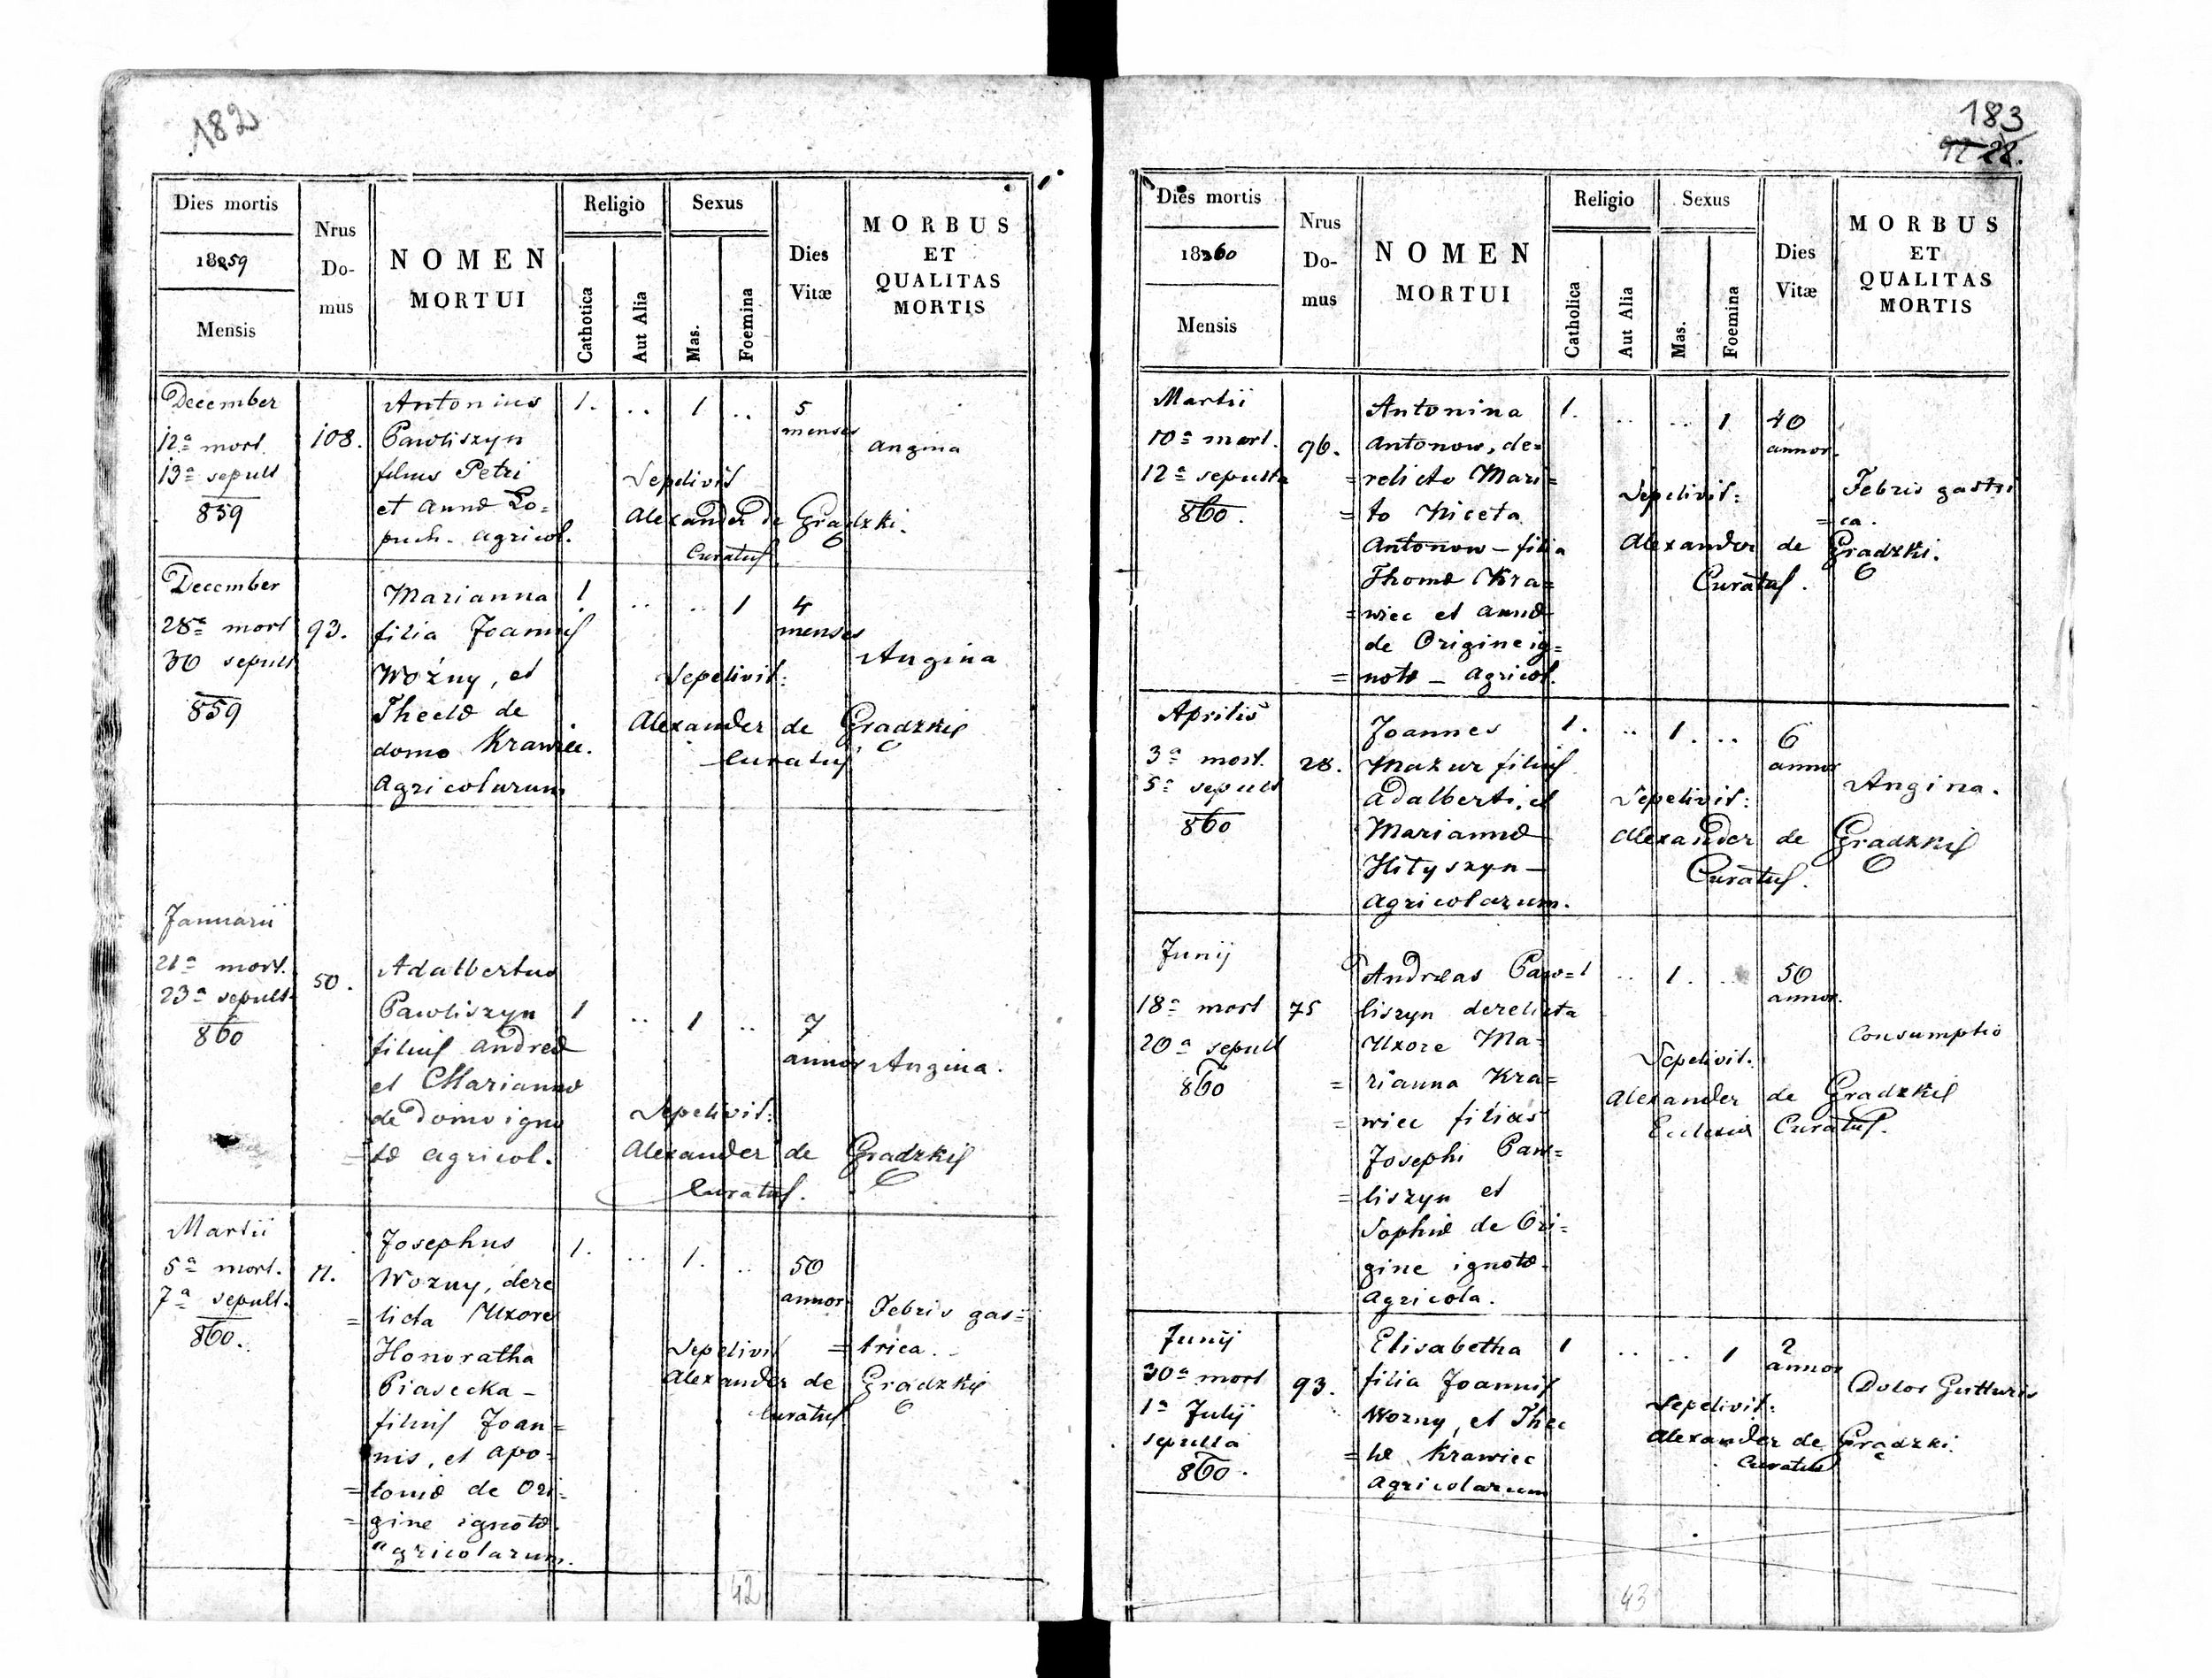 182
Dies mortis
1859
Mensis
Nrus
Do-
mus
NOMEN
MORTUI
Religio
Cathotica
Aut Alia
Sexus
Mas.
Foemina
Dies
Vitæ
MORBUS
ET
QUALITAS
MORTIS
December
12a mort.
13a sepult
859
108.
Antonius
Pawliszyn
filius Petri
et Annæ Lo=
puch. agricol.
1. .. 1 ..
5
menses
Angina
Sepelivit
Alexander de Gradzki.
Curatus
December
28a mort
30 sepult
859
93.
Marianna
filia Joannis
Woźny, et
Theclæ de
domo Krawiec.
Agricolarum
1 .. .. 1
4
menses
Angina
Sepelivit:
Alexander de Gradzki
Curatus
Januarii
21a mort.
23a sepult.
860
50.
Adalbertus
Pawliszyn
filius Andreæ
et Mariannæ
de Domo igno
=tæ agricol.
1 .. 1 ..
7
annor
Angina.
Sepelivit:
Alexander de Gradzki
Curatus.
Martii
5a mort.
7a sepult.
860.
Josephus
Wozny, dere
=licta Uxore
Honoratha
Piasecka -
filius Joan=
nis, et Apo=
=loniæ de Ori=
=gine ignotæ.
agricolarum.
1. .. 1. ..
50
annor
Febris gas=
=trica.
Sepelivit
Alexander de Gradzki
Curatus
42
183
92 28.
Dies mortis
1860
Mensis
Nrus
Do-
mus
NOMEN
MORTUI
Religio
Catholica
Aut Alia
Sexus
Mas.
Foemina
Dies
Vitæ
MORBUS
ET
QUALITAS
MORTIS
Martii
10a mort.
12a sepulta
860.
96.
Antonina
Antonow, de=
=relicto Mari=
=to Niceta
Antonow - filia
Thomæ Kra=
=wiec et Annæ
de Origine ig=
=notæ - Agricol.
1. .. .. 1
40
annor.
Febris gastri
=ca.
Sepelivit:
Alexander de Gradzki.
Curatus.
Aprilis
3a mort.
5a sepult
860
28.
Joannes
Mazur filius
Adalberti, et
Mariannæ
Hityszyn -
Agricolarum.
1. .. 1. ..
6
annor
Angina.
Sepelivit:
Alexander de Gradzki
Curatus.
Junij
18a mort
20a sepult
860
75
Andreas Paw=
liszyn derelicta
Uxore Ma=
=rianna Kra=
=wiec filius
Josephi Paw=
=liszyn et
Sophiæ de Ori=
gine ignotæ.
Agricola.
1 .. 1. ..
50
annor.
Consumptio
Sepelivit.
Alexander de Gradzki
Ecclesiæ Curatus.
Junij
30a mort
1a Julij
sepulta
860.
93.
Elisabetha
filia Joannis
Wozny, et Thec
=læ Krawiec
Agricolarum
1 .. .. 1
2
annor
Dolor Gutturis
Sepelivit:
Alexander de Gradzki.
Curatus
43